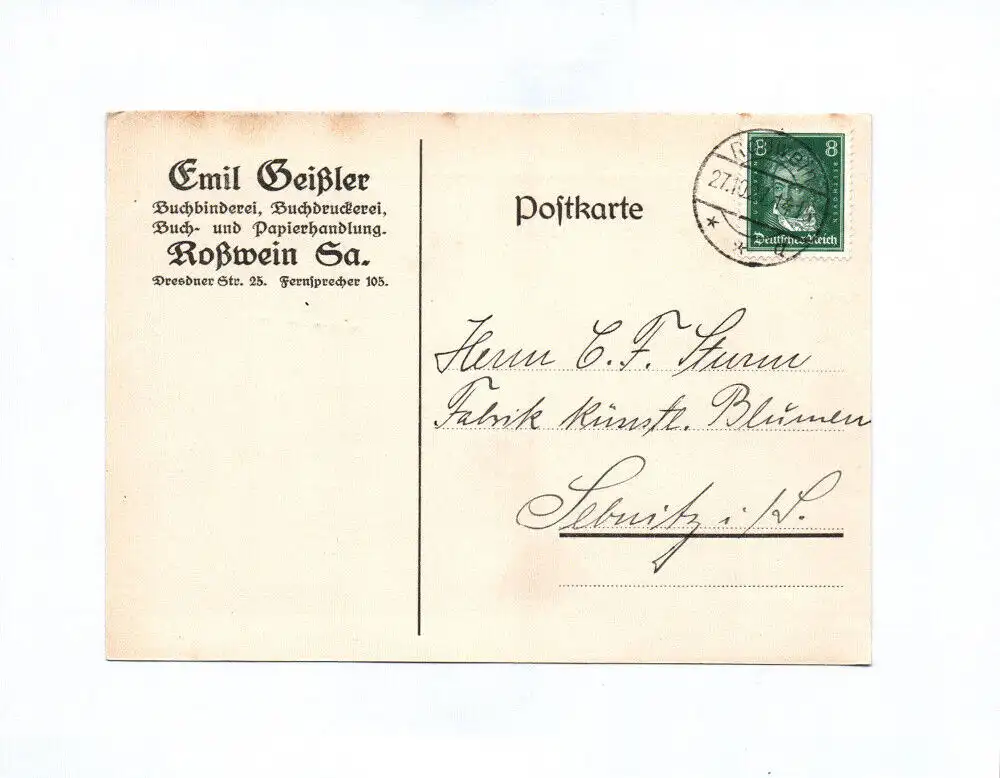 Emil Geißler
Buchbinderei, Buchdruckerei,
Buch- und Papierhandlung.
Roßwein Sa.
Dresdner Str. 25. Fernsprecher 105.
Postkarte
27.10.
8 8
Deutsches Reich
Herrn C. F. Sturm
Fabrik künstl. Blumen
Sebnitz i/S.